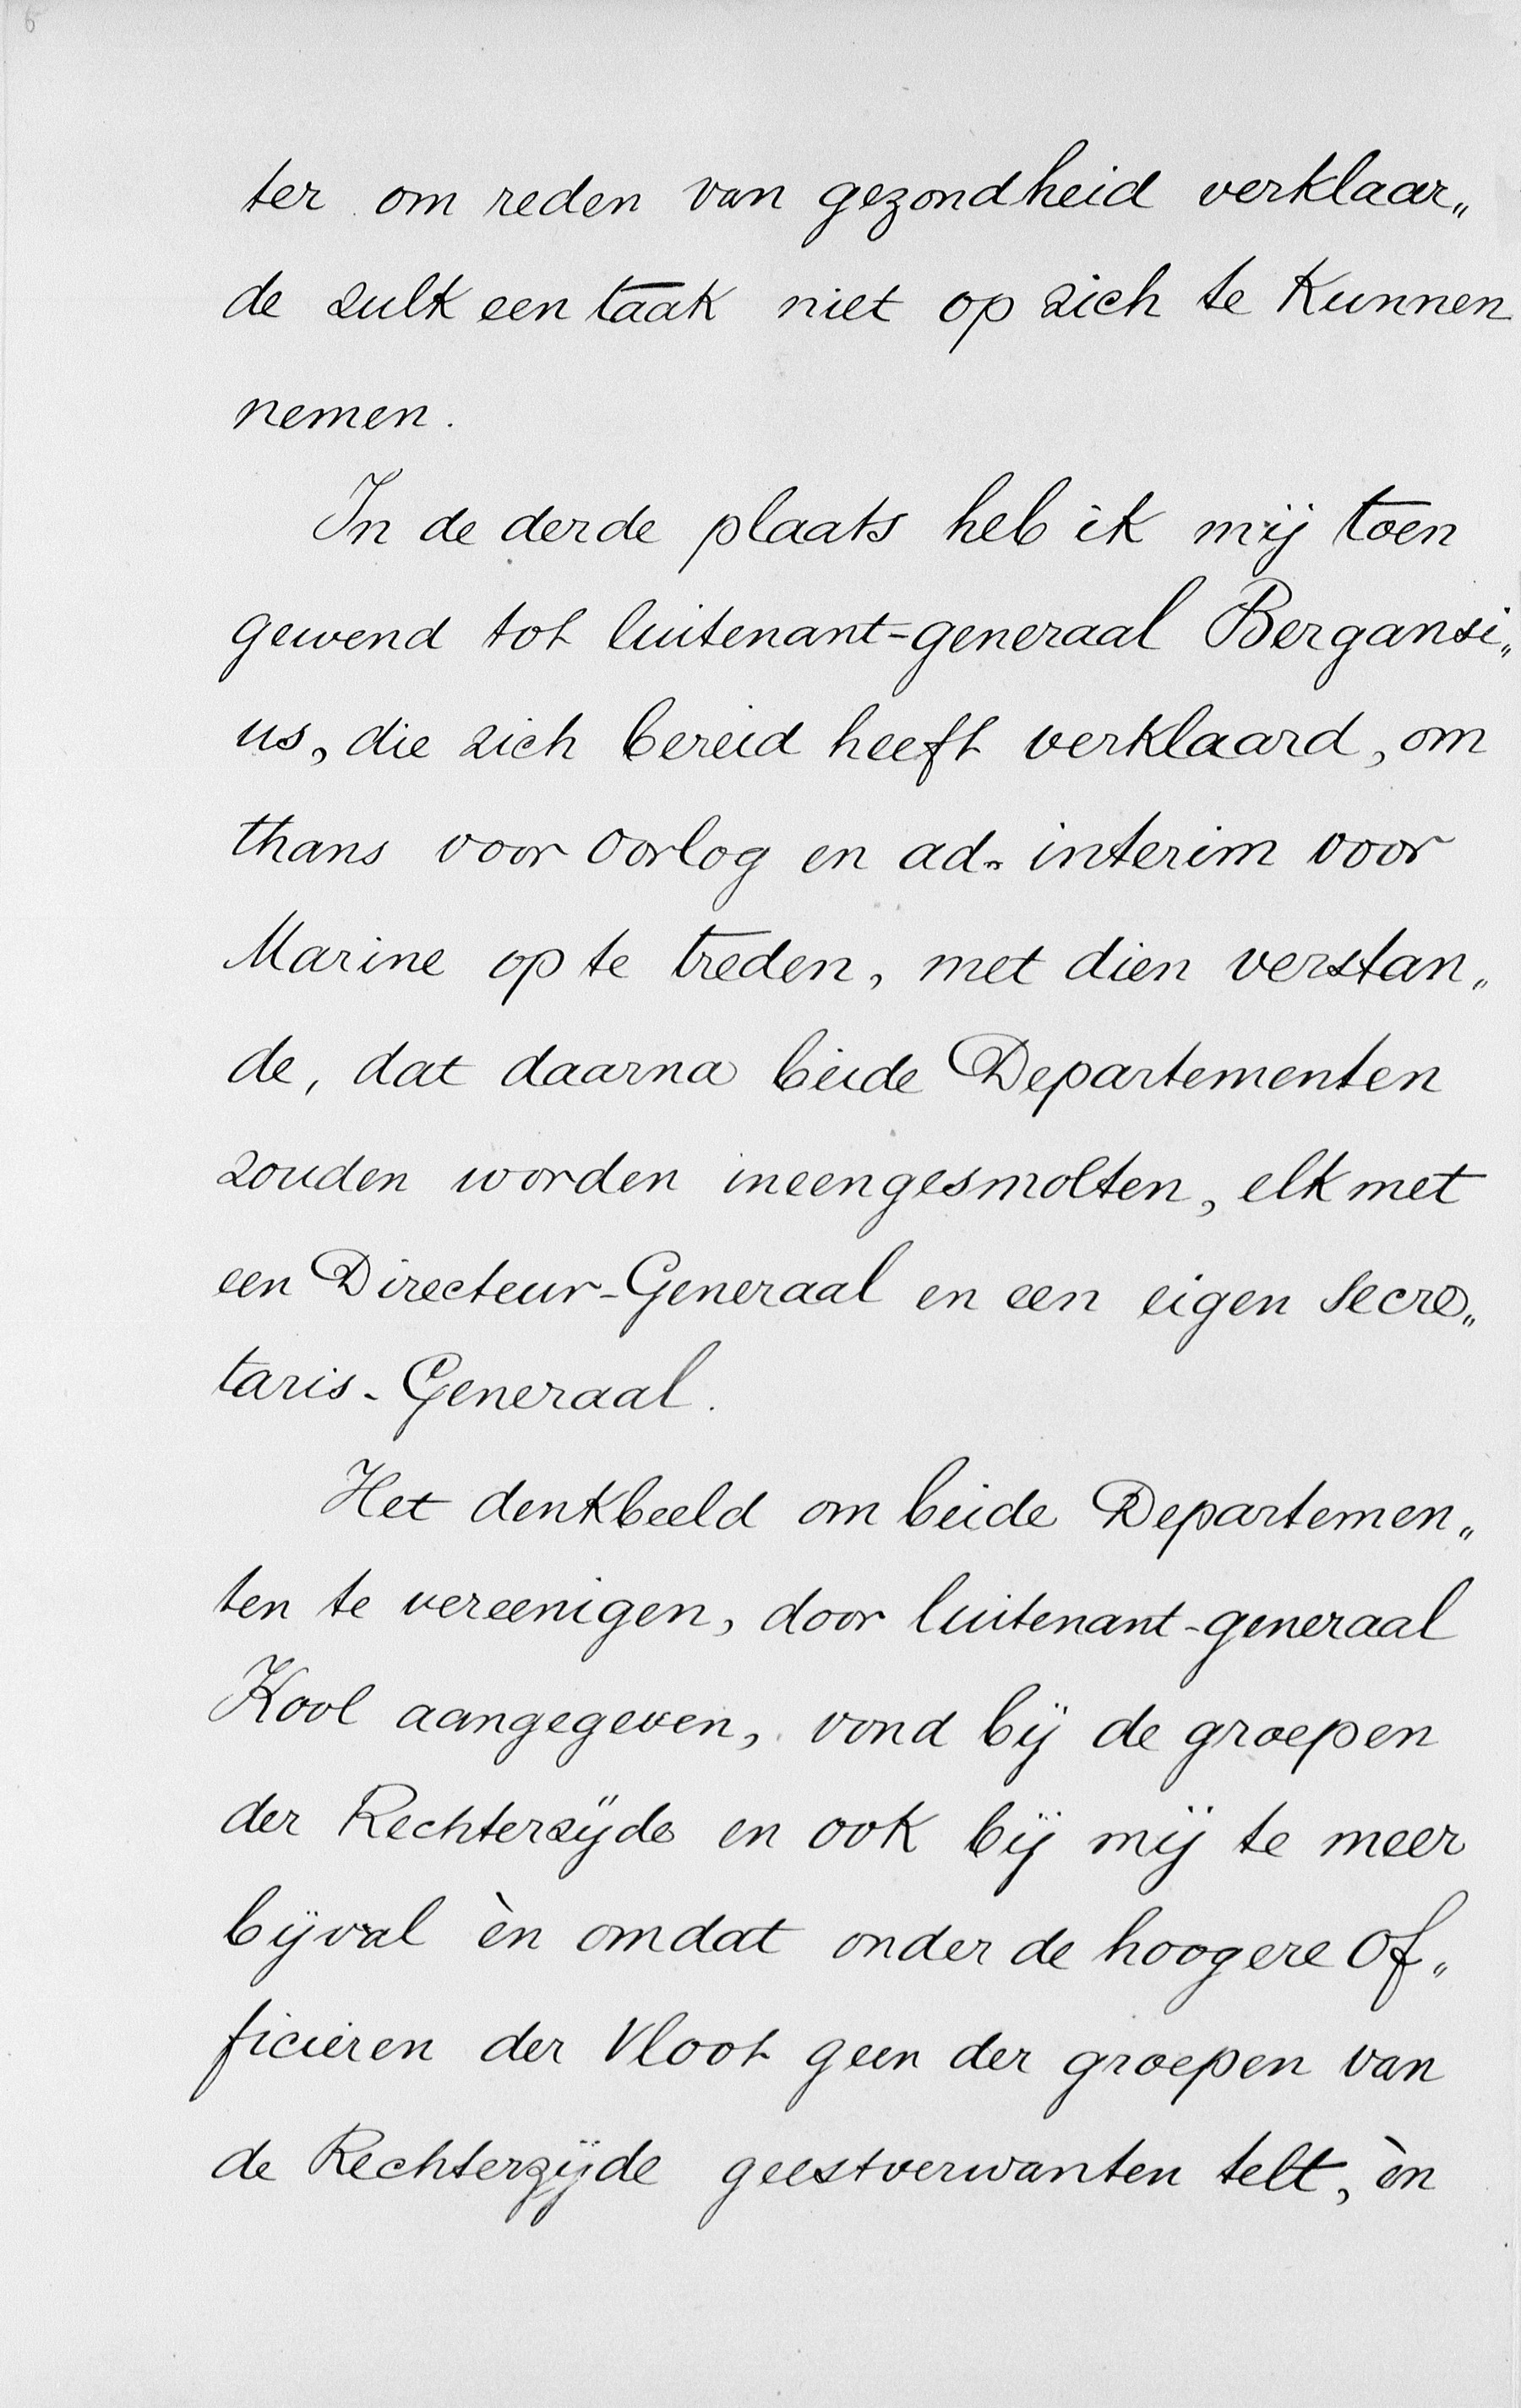 6
ter om reden van gezondheid verklaar„
de zulk een taak niet op zich te kunnen
nemen.
In de derde plaats heb ik mij toen
gewend tot luitenant-generaal Bergansi„
us, die zich bereid heeft verklaard, om
thans voor Oorlog en ad-interim voor
Marine op te treden, met dien verstan„
de, dat daarna beide Departementen
zouden worden ineengesmolten, elk met
een Directeur-Generaal en een eigen Secre„
taris-Generaal.
Het denkbeeld om beide Departemen„
ten te vereenigen, door luitenant-generaal
Kool aangegeven, vond bij de groepen
der Rechterzijde en ook bij mij te meer
bijval èn omdat onder de hoogere Of„
ficieren der Vloot geen der groepen van
de Rechterzijde geestverwanten telt, èn